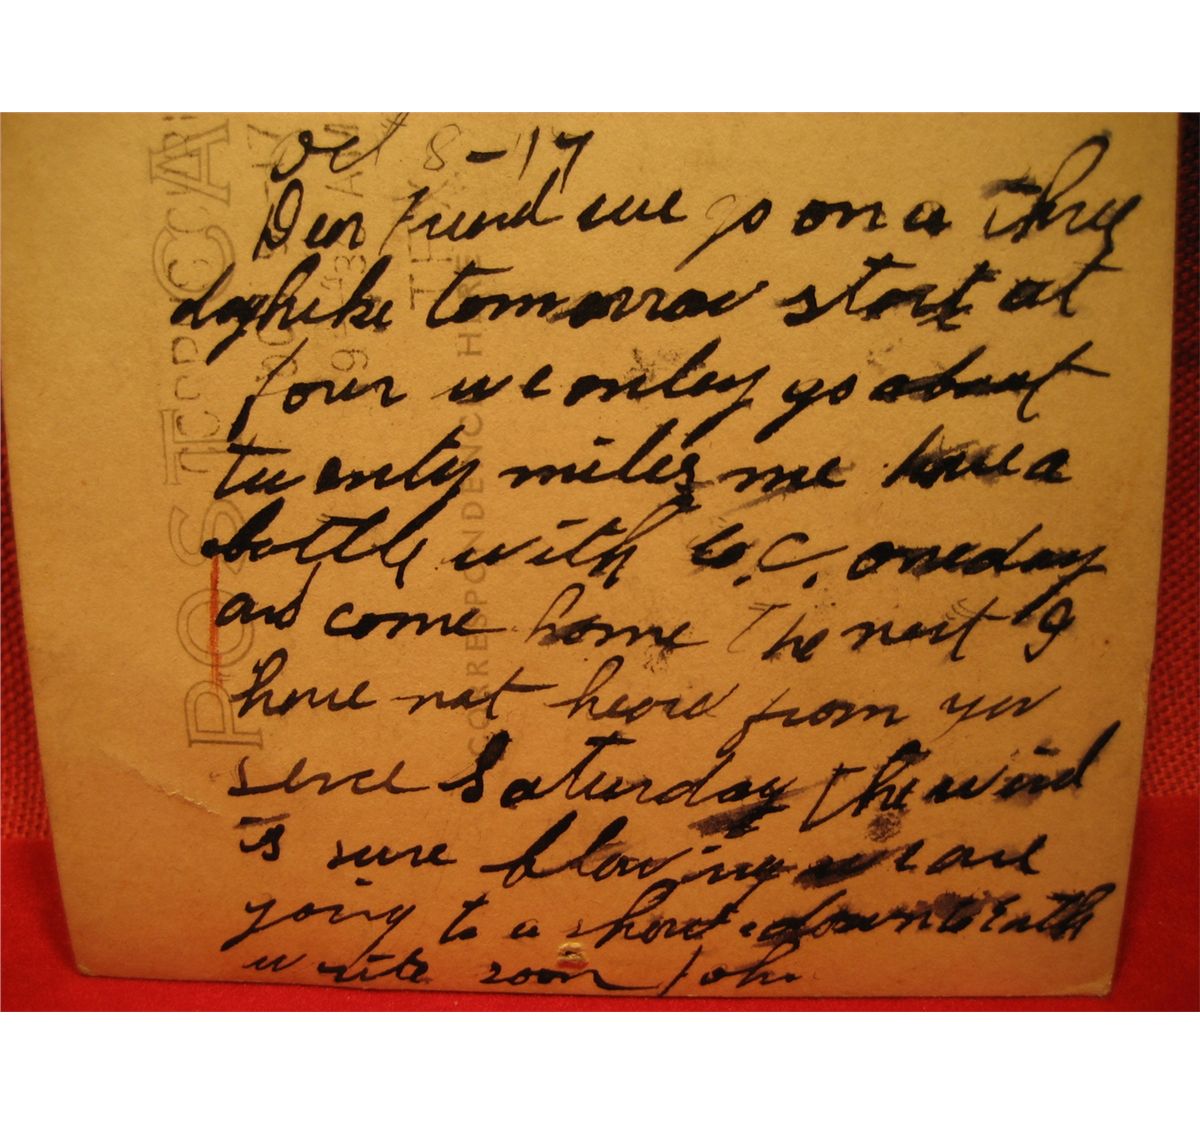 Oct 8-17
Dear Friend we go on a three
day hike tomorrow start at
four we onley go about
twenty miles me have a
battle with Co. C. one day
and come home the next I
have not heard from you
sence Saturday the wind
is sure blowing we are
going to a show down to
write soon John
POST CARD
CORRESPONDENCE HERE
TEXAS